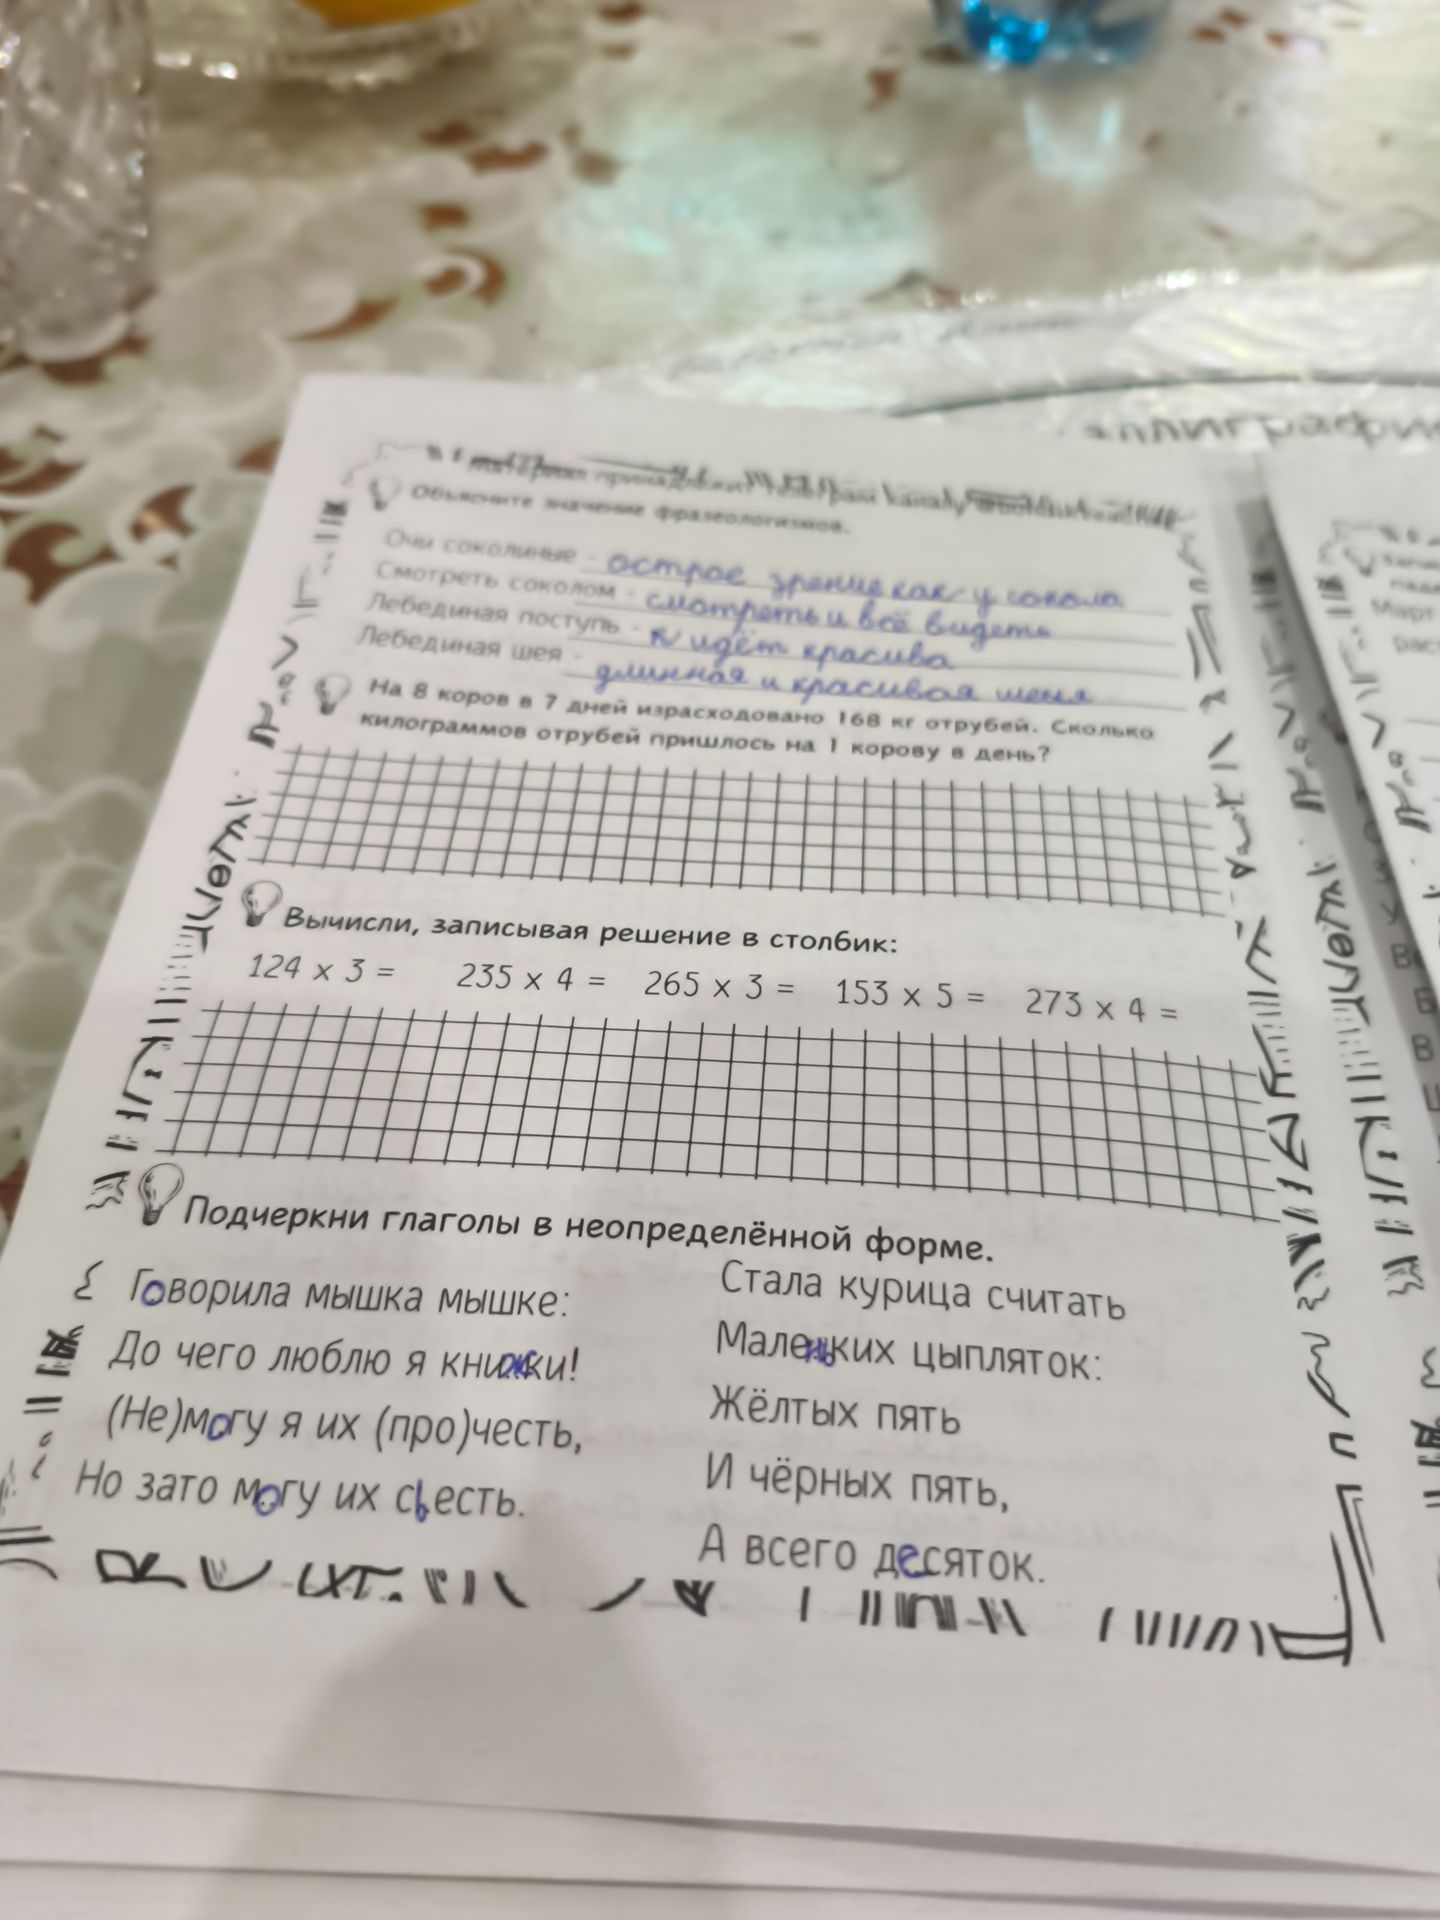 Объясните значение фразеологизмов.
Очи соколиные - острое зрение как у сокола
Смотреть соколом - смотреть и всё видеть
Лебединая поступь - идёт красива
Лебединая шея - длинная и красивая шеня
На 8 коров в 7 дней израсходовано 168 кг отрубей. Сколько
килограммов отрубей пришлось на 1 корову в день?
Вычисли, записывая решение в столбик:
124 х 3 = 235 х 4 = 265 х 3 = 153 х 5 = 273 х 4 =
Подчеркни глаголы в неопределённой форме.
Говорила мышка мышке:
До чего люблю я книжки!
(Не)могу я их (про)честь,
Но зато могу их съесть.
Стала курица считать
Маленьких цыпляток:
Жёлтых пять
И чёрных пять,
А всего десяток.
Март